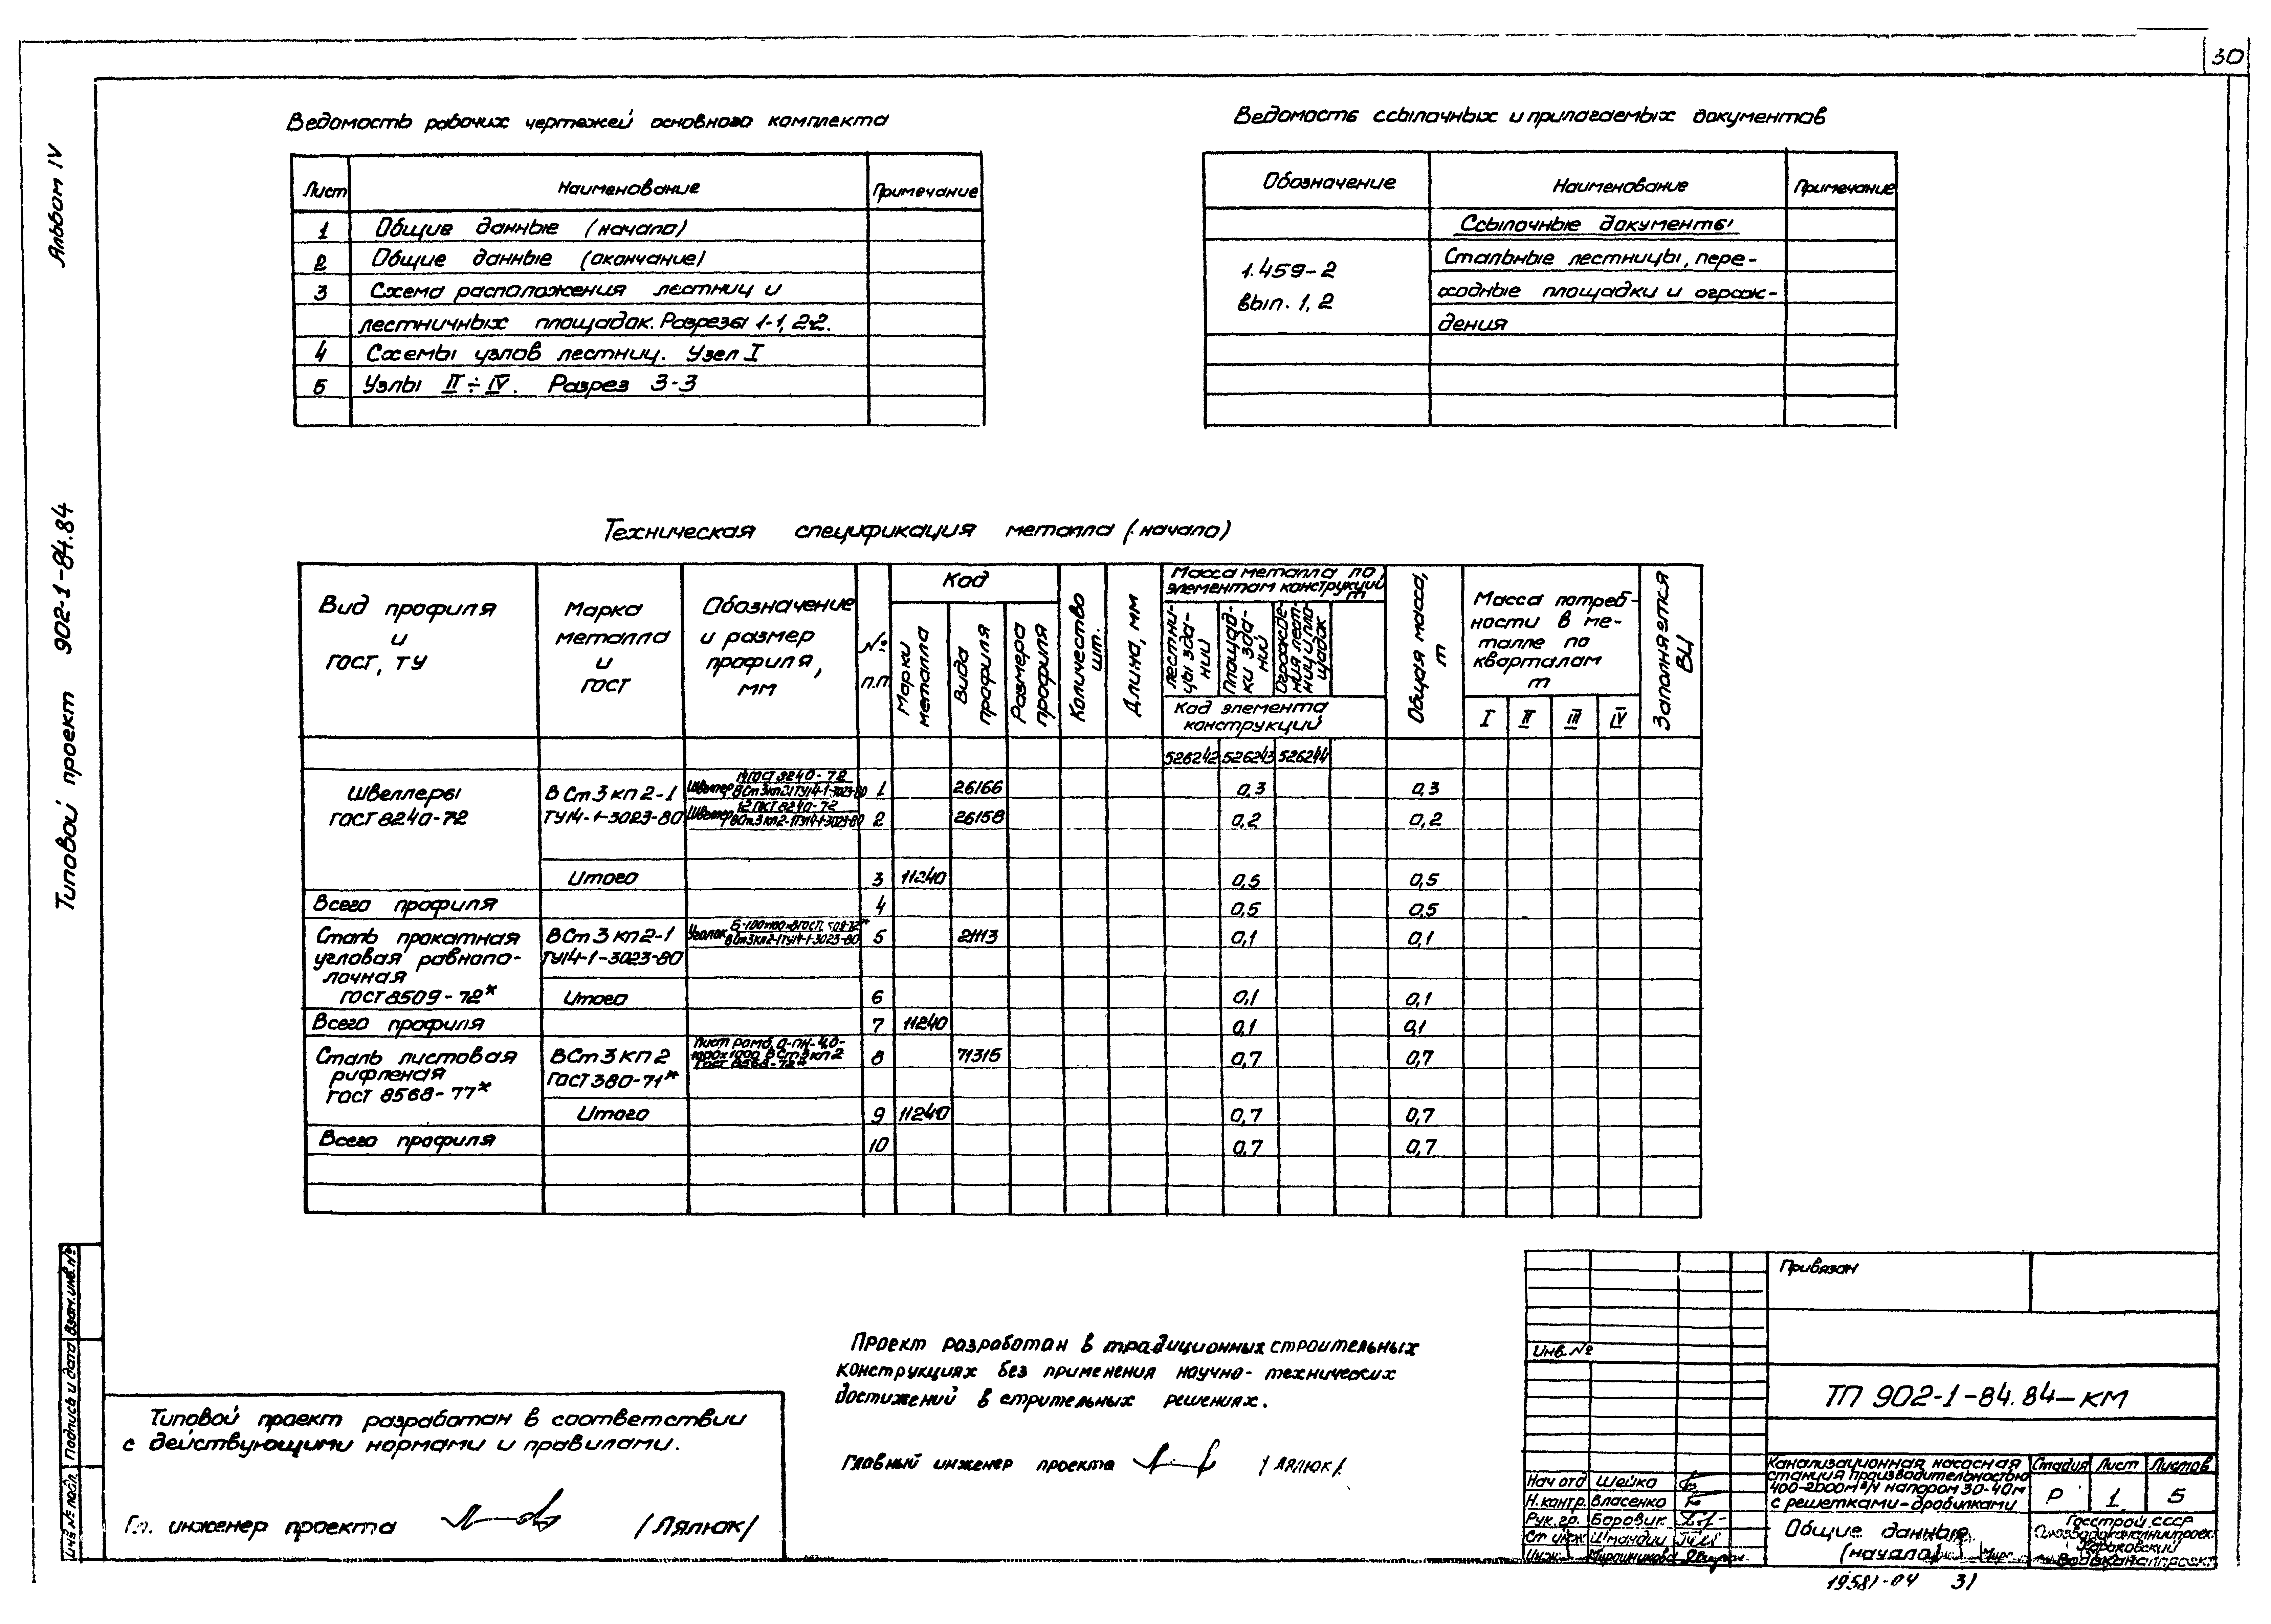 30
Альбом IV
Типовой проект 902-1-84.84
Ведомость рабочих чертежей основного комплекта
Лист Наименование Примечание
1 Общие данные (начало)
2 Общие данные (окончание)
3 Схема расположения лестниц и
лестничных площадок. Разрезы 1-1, 2-2.
4 Схемы узлов лестниц. Узел I
5 Узлы II ÷ IV. Разрез 3-3
Ведомость ссылочных и прилагаемых документов
Обозначение Наименование Примечание
Ссылочные документы
1.459-2 Стальные лестницы, пере-
вып. 1, 2 ходные площадки и ограж-
дения
Техническая спецификация металла (начало)
Вид профиля и ГОСТ, ТУ
Марка металла и ГОСТ
Обозначение и размер профиля, мм
№ п.п.
Код
Марки металла
Вида профиля
Размера профиля
Количество шт.
Длина, мм
Масса металла по элементам конструкций т
Лестни-цы зда-ний
Площад-ки зда-ний
Огражде-ния лест-ниц и пло-щадок
Код элемента конструкций
Общая масса, т
Масса потреб-ности в ме-талле по кварталам т
I II III IV
Заполняется ВЦ
526242 526243 526244
Швеллеры ГОСТ 8240-72
ВСт3кп2-1 ТУ14-1-3023-80
Швеллер 14 ГОСТ 8240-72 ВСт3кп2-1 ТУ14-1-3023-80 1 26166 0,3 0,3
Швеллер 12 ГОСТ 8240-72 ВСт3кп2-1 ТУ14-1-3023-80 2 26158 0,2 0,2
Итого 3 11240 0,5 0,5
Всего профиля 4 0,5 0,5
Сталь прокатная угловая равнопо-лочная ГОСТ 8509-72*
ВСт3кп2-1 ТУ14-1-3023-80
Уголок ВСт3кп2-1 ТУ14-1-3023-80 5 21113 0,1 0,1
Итого 6 0,1 0,1
Всего профиля 7 11240 0,1 0,1
Сталь листовая рифленая ГОСТ 8568-77*
ВСт3кп2 ГОСТ 380-71*
Лист ромб. 1000х1000 ВСт3кп2 8 71315 0,7 0,7
Итого 9 11240 0,7 0,7
Всего профиля 10 0,7 0,7
Проект разработан в традиционных строительных
конструкциях без применения научно-технических
достижений в стрительных решениях.
Главный инженер проекта /Лялюк/
Типовой проект разработан в соответствии
с действующими нормами и правилами.
Гл. инженер проекта /Лялюк/
Взам. инв. №
Подпись и дата
Инв. № подл.
Привязан
Инв. №
ТП 902-1-84.84-КМ
Нач отд Шейко
Н.контр. Власенко
Рук.гр. Боровик
Ст инж
Инж. Мирошникова
Канализационная насосная
станция производительностью
400-2000м³/ч напором 30-40м
с решетками-дробилками
Стадия Лист Листов
Р 1 5
Общие данные
(начало)
Госстрой СССР
Союзводоканалниипроект
Харьковский
Водоканалпроект
19581-04 31